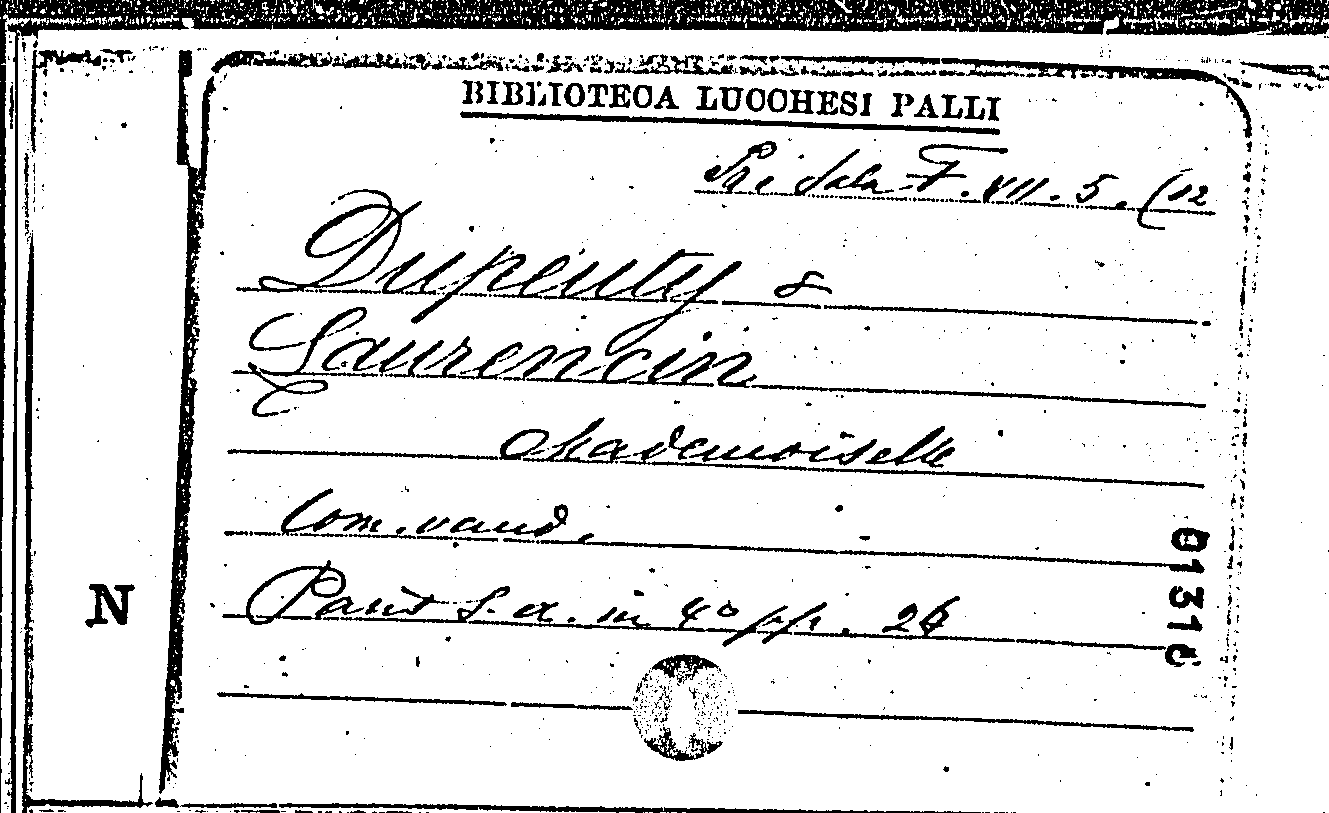 BIBLIOTECA LUCCHESI PALLI
Sala F. VII. 5. (12
Dupeuty &
Laurencin
Mademoiselle
Com. vaud.
Paris s. a. in 4° pp. 26
N